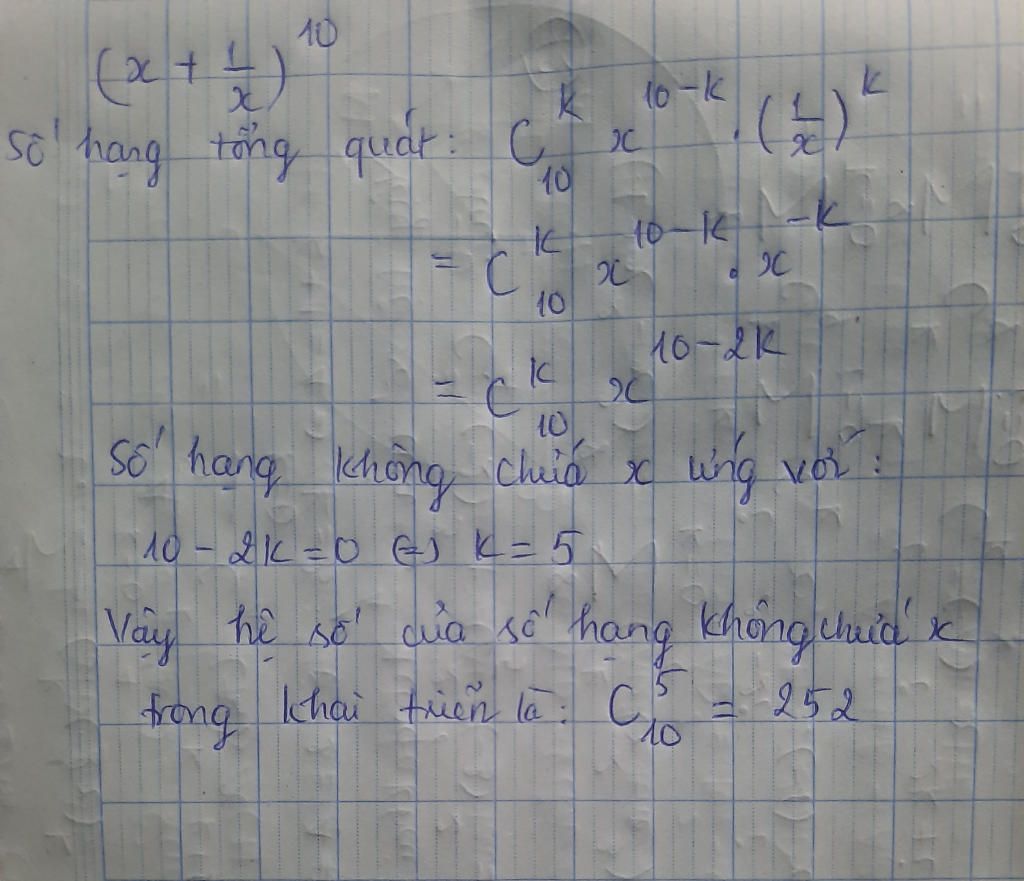 (x + 1/x)^10
Số hạng tổng quát: C_10^k x^(10-k) . (1/x)^k
= C_10^k x^(10-k) . x^(-k)
= C_10^k x^(10-2k)
Số hạng không chứa x ứng với:
10 - 2k = 0 ⇔ k = 5
Vậy hệ số của số hạng không chứa x
trong khai triển là: C_10^5 = 252